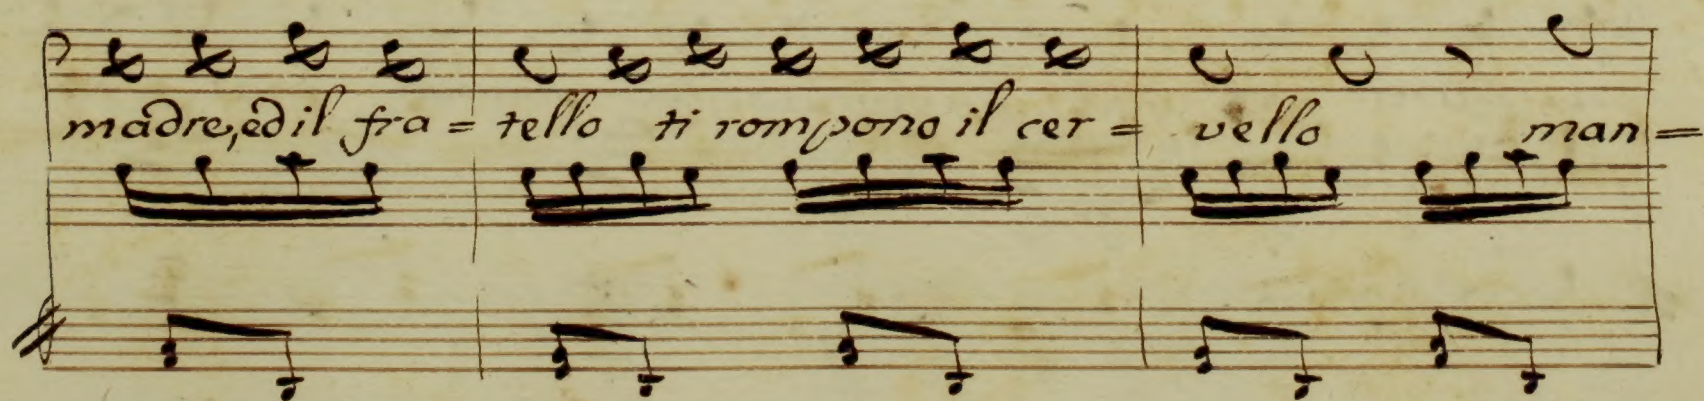 madre, ed il fra = tello ti rompono il cer = vello man =